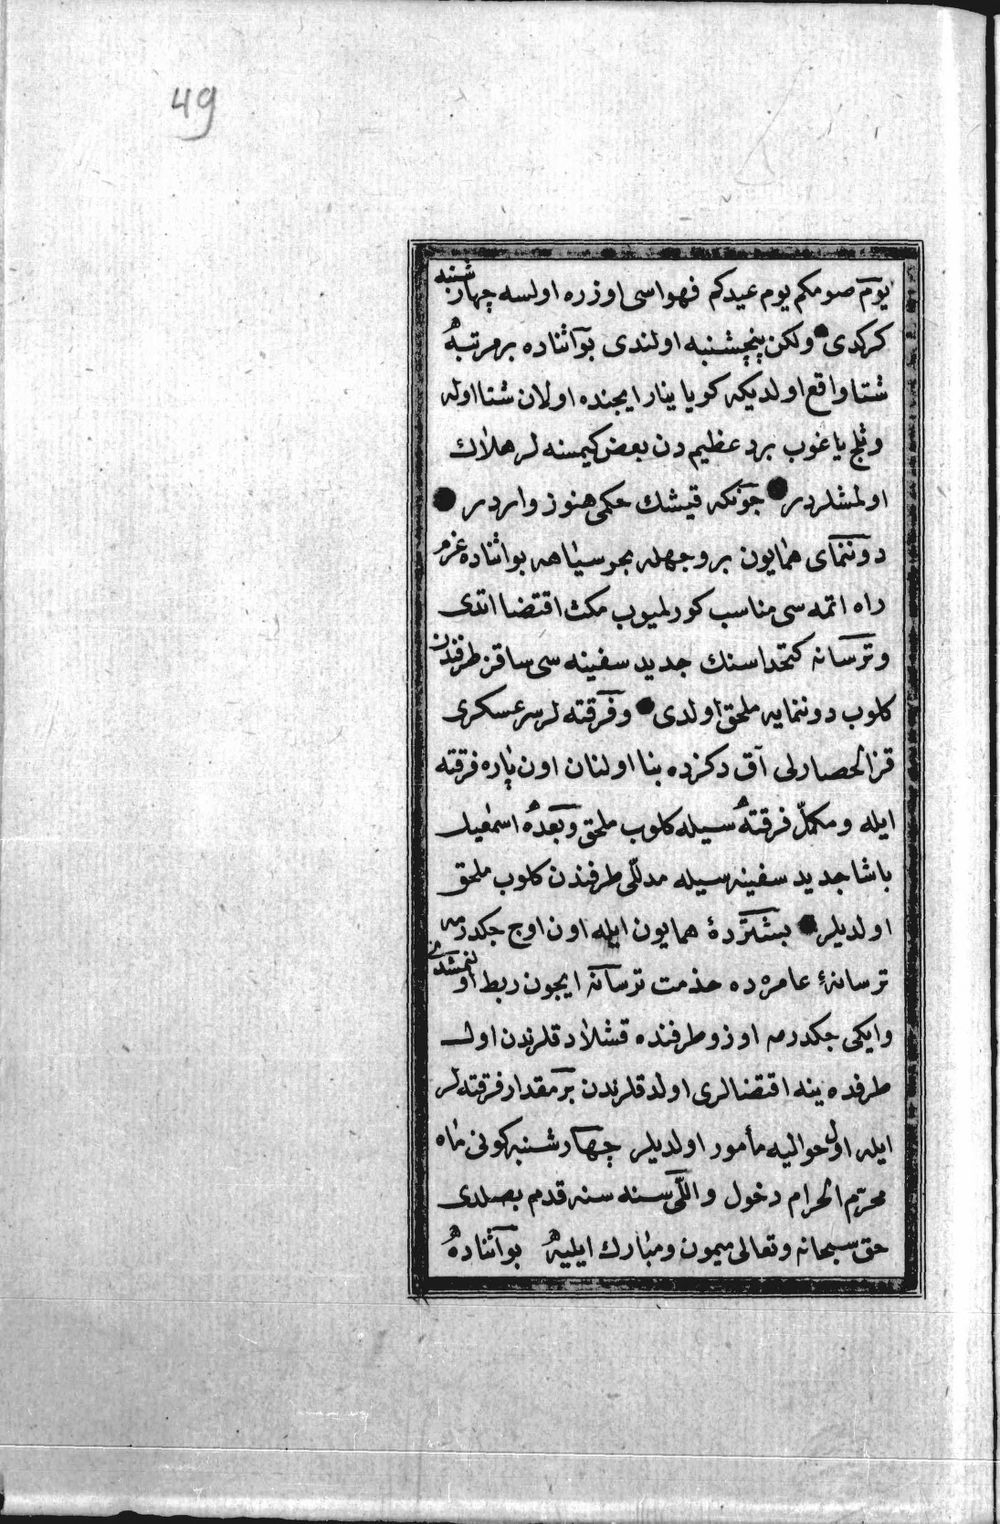 49
يوم صومكم يوم عيدكم فهواسى اوزره اولسه چهارشنبه
كركدى ولكن پنچشنبه اولندى بو اثناده بر مرتبه
شتا واقع اولديكه كويا ينار ايچنده اولان شتا اوله
وثلج ياغوب برد عظيم دن بعض كيمسنه لر هلاك
اولمشلردر چونكه قيشك حكمى هنوز واردر
دوننماى همايون بر وجهله بحر سياهه بو اثناده عزم
راه اتمه سى مناسب كورلميوب مكث اقتضا اتدى
وترسانه كتخداسنك جديد سفينه سى ساقز طرفندن
كلوب دوننمايه ملحق اولدى وفرقته لر سرعسكرى
قزالحصارلى آق دكزده بنا اولنان اون پاره فرقته
ايله ومكمل فرقته سيله كلوب ملحق وبعده اسمعيل
پاشا جديد سفينه سيله مدللى طرفندن كلوب ملحق
اولديلر بشتردهٔ همايون ايله اون اوچ چكدرمه
ترسانهٔ عامره ده خذمت ترسانه ايچون ربط اولنمشدر
وايكى چكدرمه اوزو طرفنده قشلادقلرندن اول
طرفده ينه اقتضالرى اولدقلرندن بر مقدار فرقته لر
ايله اول حواليه مأمور اولديلر چهارشنبه كونى ماه
محرم الحرام دخول واللى سنه سنه قدم بصلدى
حق سبحانه وتعالى ميمون ومبارك ايليه بو اثناده